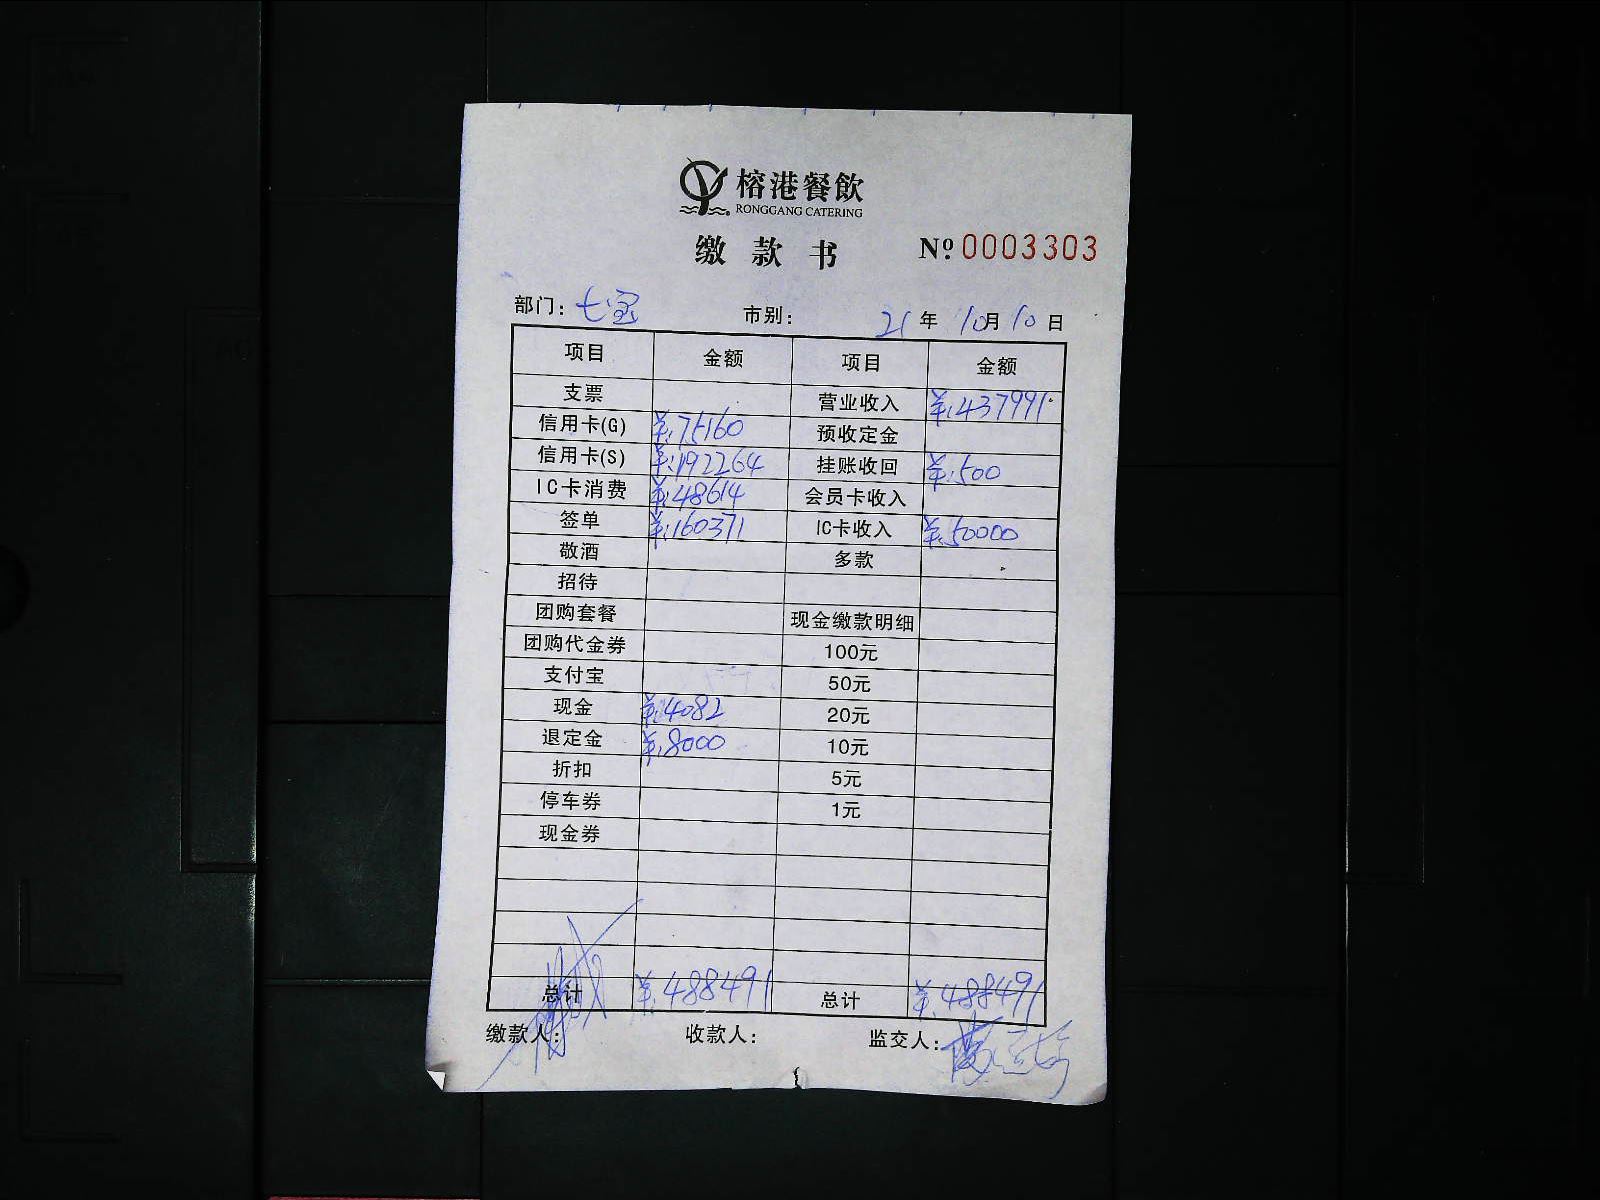 榕港餐飲
RONGGANG CATERING
缴款书 №0003303
部门：七宝 市别： 21年10月10日
项目 金额 项目 金额
支票 营业收入 ¥:437991
信用卡(G) ¥:75160 预收定金
信用卡(S) ¥:192264 挂账收回 ¥:500
IC卡消费 ¥:48614 会员卡收入
签单 ¥:160371 IC卡收入 ¥:50000
敬酒 多款
招待
团购套餐 现金缴款明细
团购代金券 100元
支付宝 50元
现金 ¥:4082 20元
退定金 ¥:8000 10元
折扣 5元
停车券 1元
现金券
总计 ¥:488491 总计 ¥:488491
缴款人： 收款人： 监交人：